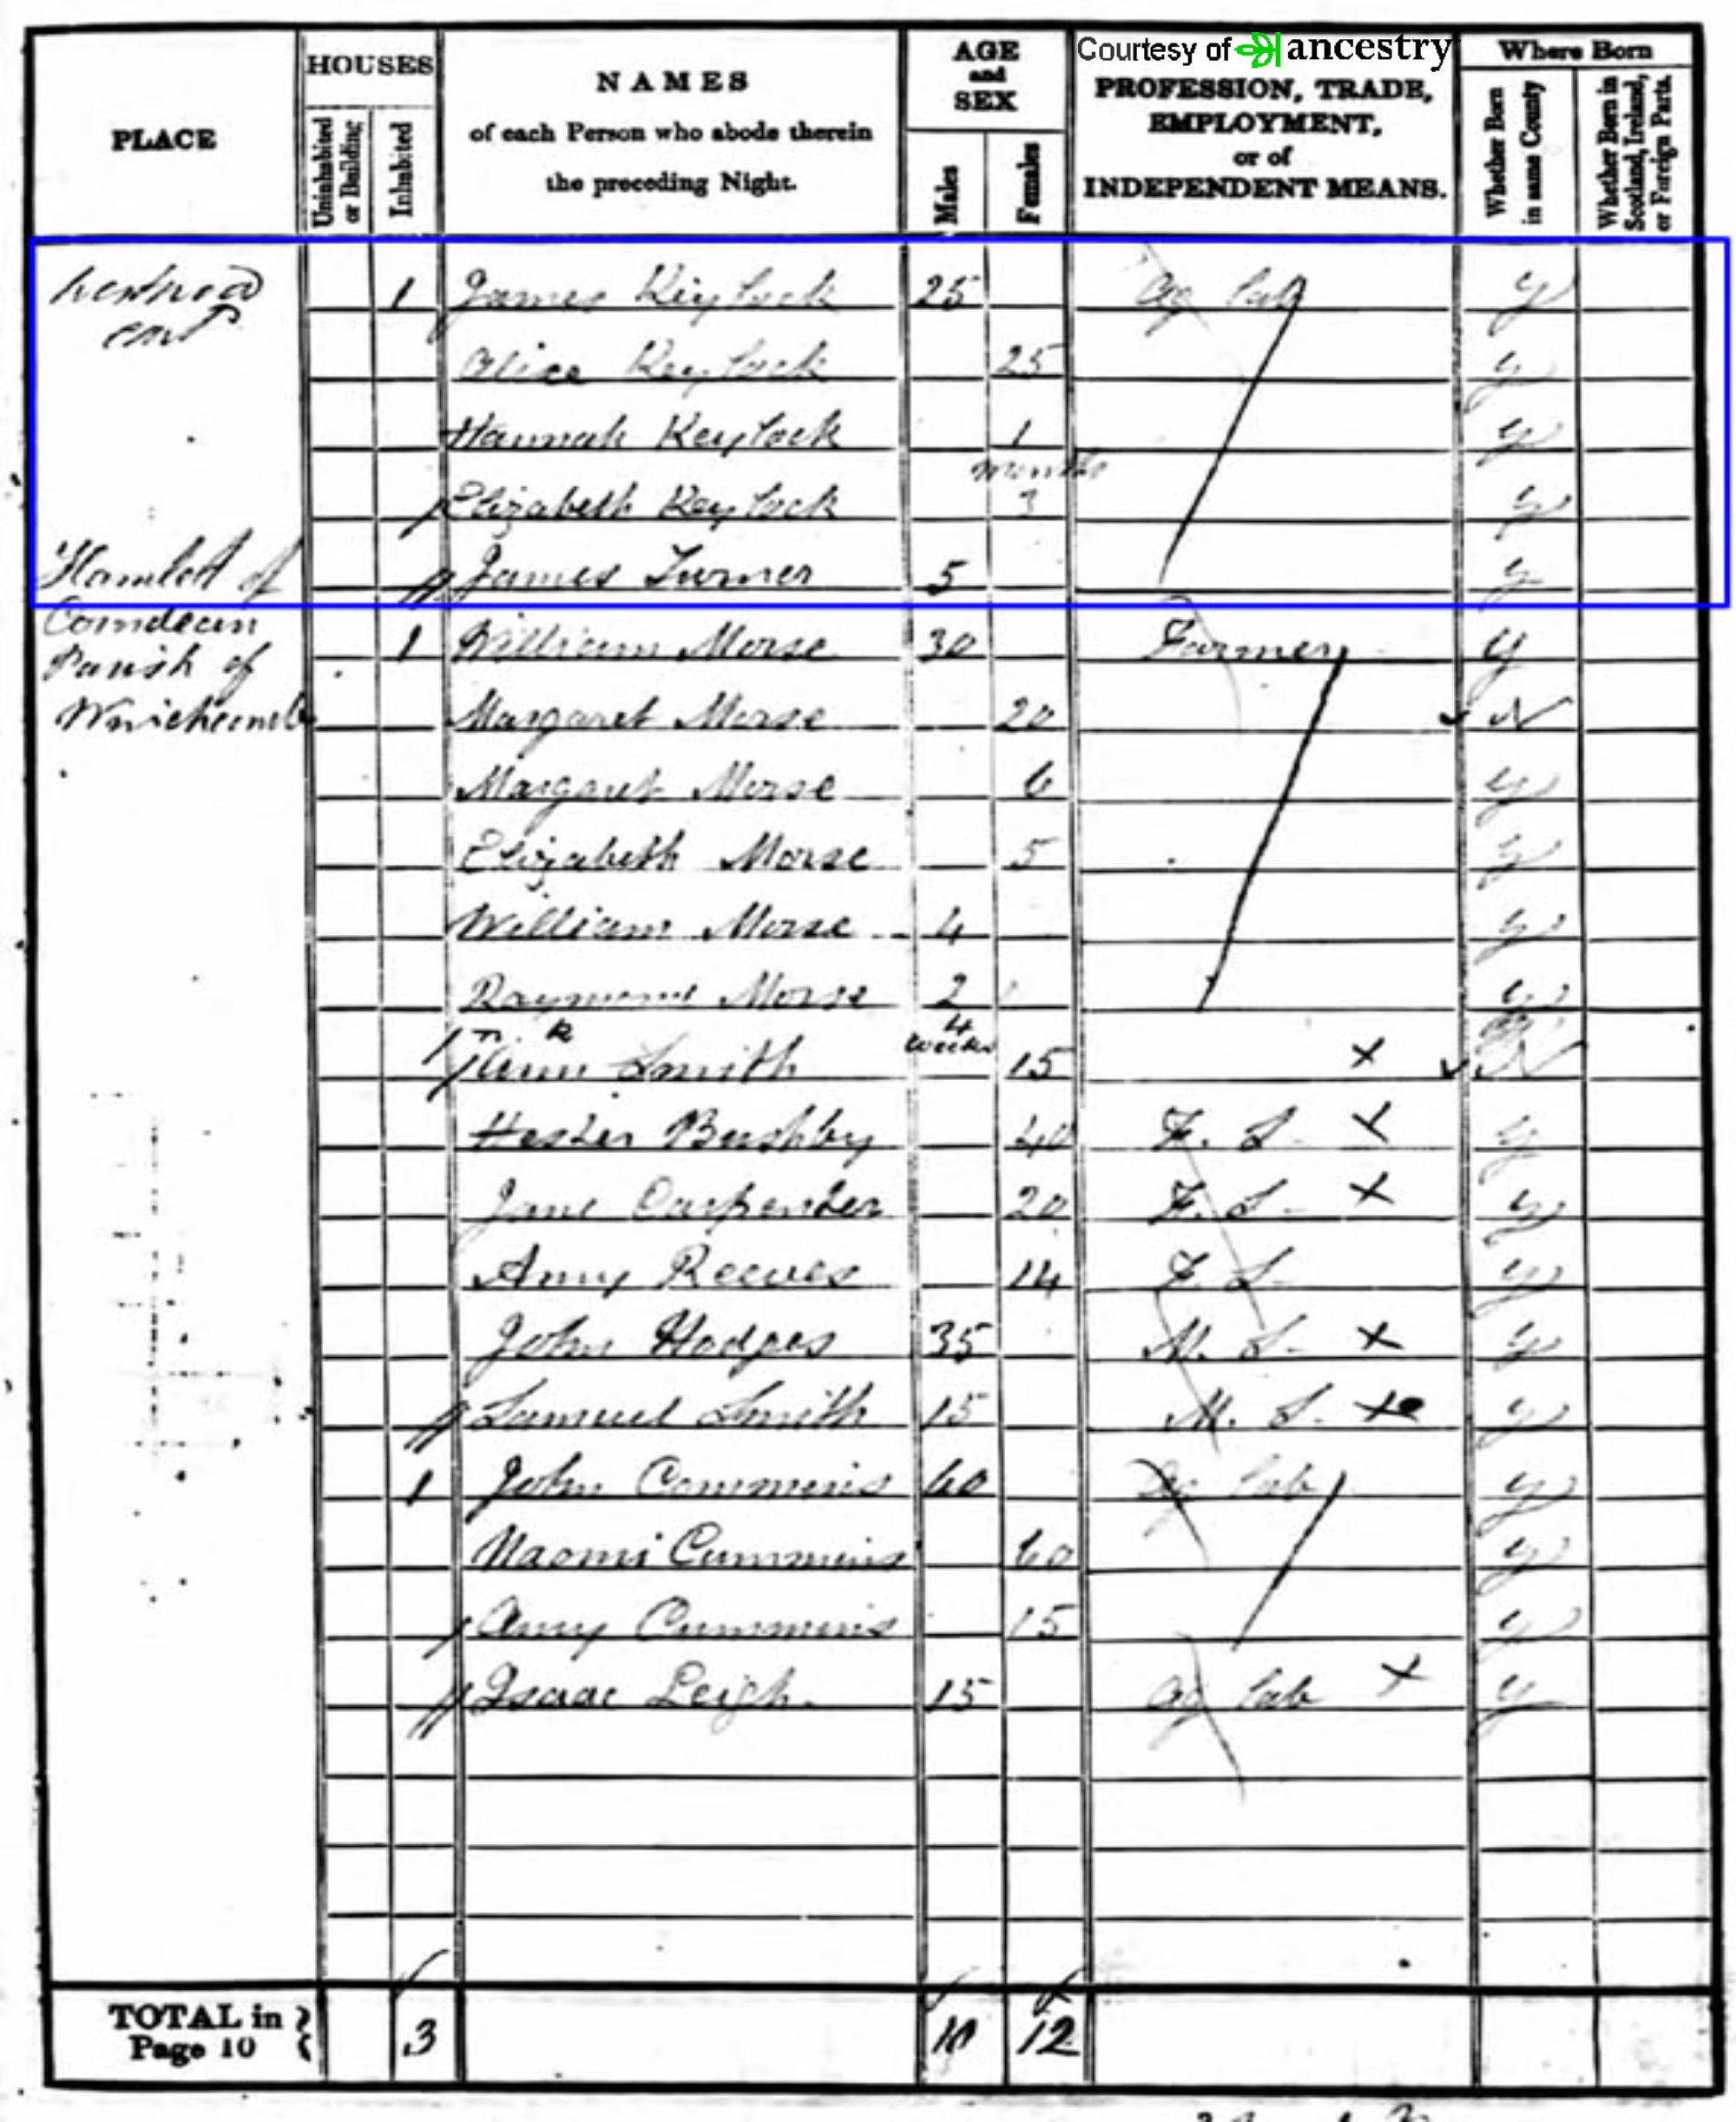 Courtesy of ancestry
PLACE
HOUSES
Uninhabited or Building
Inhabited
NAMES
of each Person who abode therein
the preceding Night.
AGE
and
SEX
Males
Females
PROFESSION, TRADE,
EMPLOYMENT,
or of
INDEPENDENT MEANS.
Where Born
Whether Born in same County
Whether Born in Scotland, Ireland, or Foreign Parts.
1 James Keylock 25 Ag Lab y
Alice Keylock 25 y
Hannah Keylock 1 y
months
Elizabeth Keylock 3 y
Hamlett of James Turner 5 y
Comdean
1 William Morse 30 Farmer y
Parish of
Margaret Morse 20 N
Margaret Morse 6 y
Elizabeth Morse 5 y
William Morse 4 y
Raymond Morse 2 y
n. k 4 weeks
Ann Smith 15 x N
Hester Bushby 40 F. S. x y
Jane Carpenter 20 F. S. x y
Amy Reeves 14 F. S. y
John Hodges 35 M. S. x y
Samuel Smith 15 M. S. x y
1 John Cummins 60 Ag Lab y
Naomi Cummins 60 y
Amy Cummins 15 y
Isaac Leigh 15 Ag Lab x y
TOTAL in Page 10 3 10 12